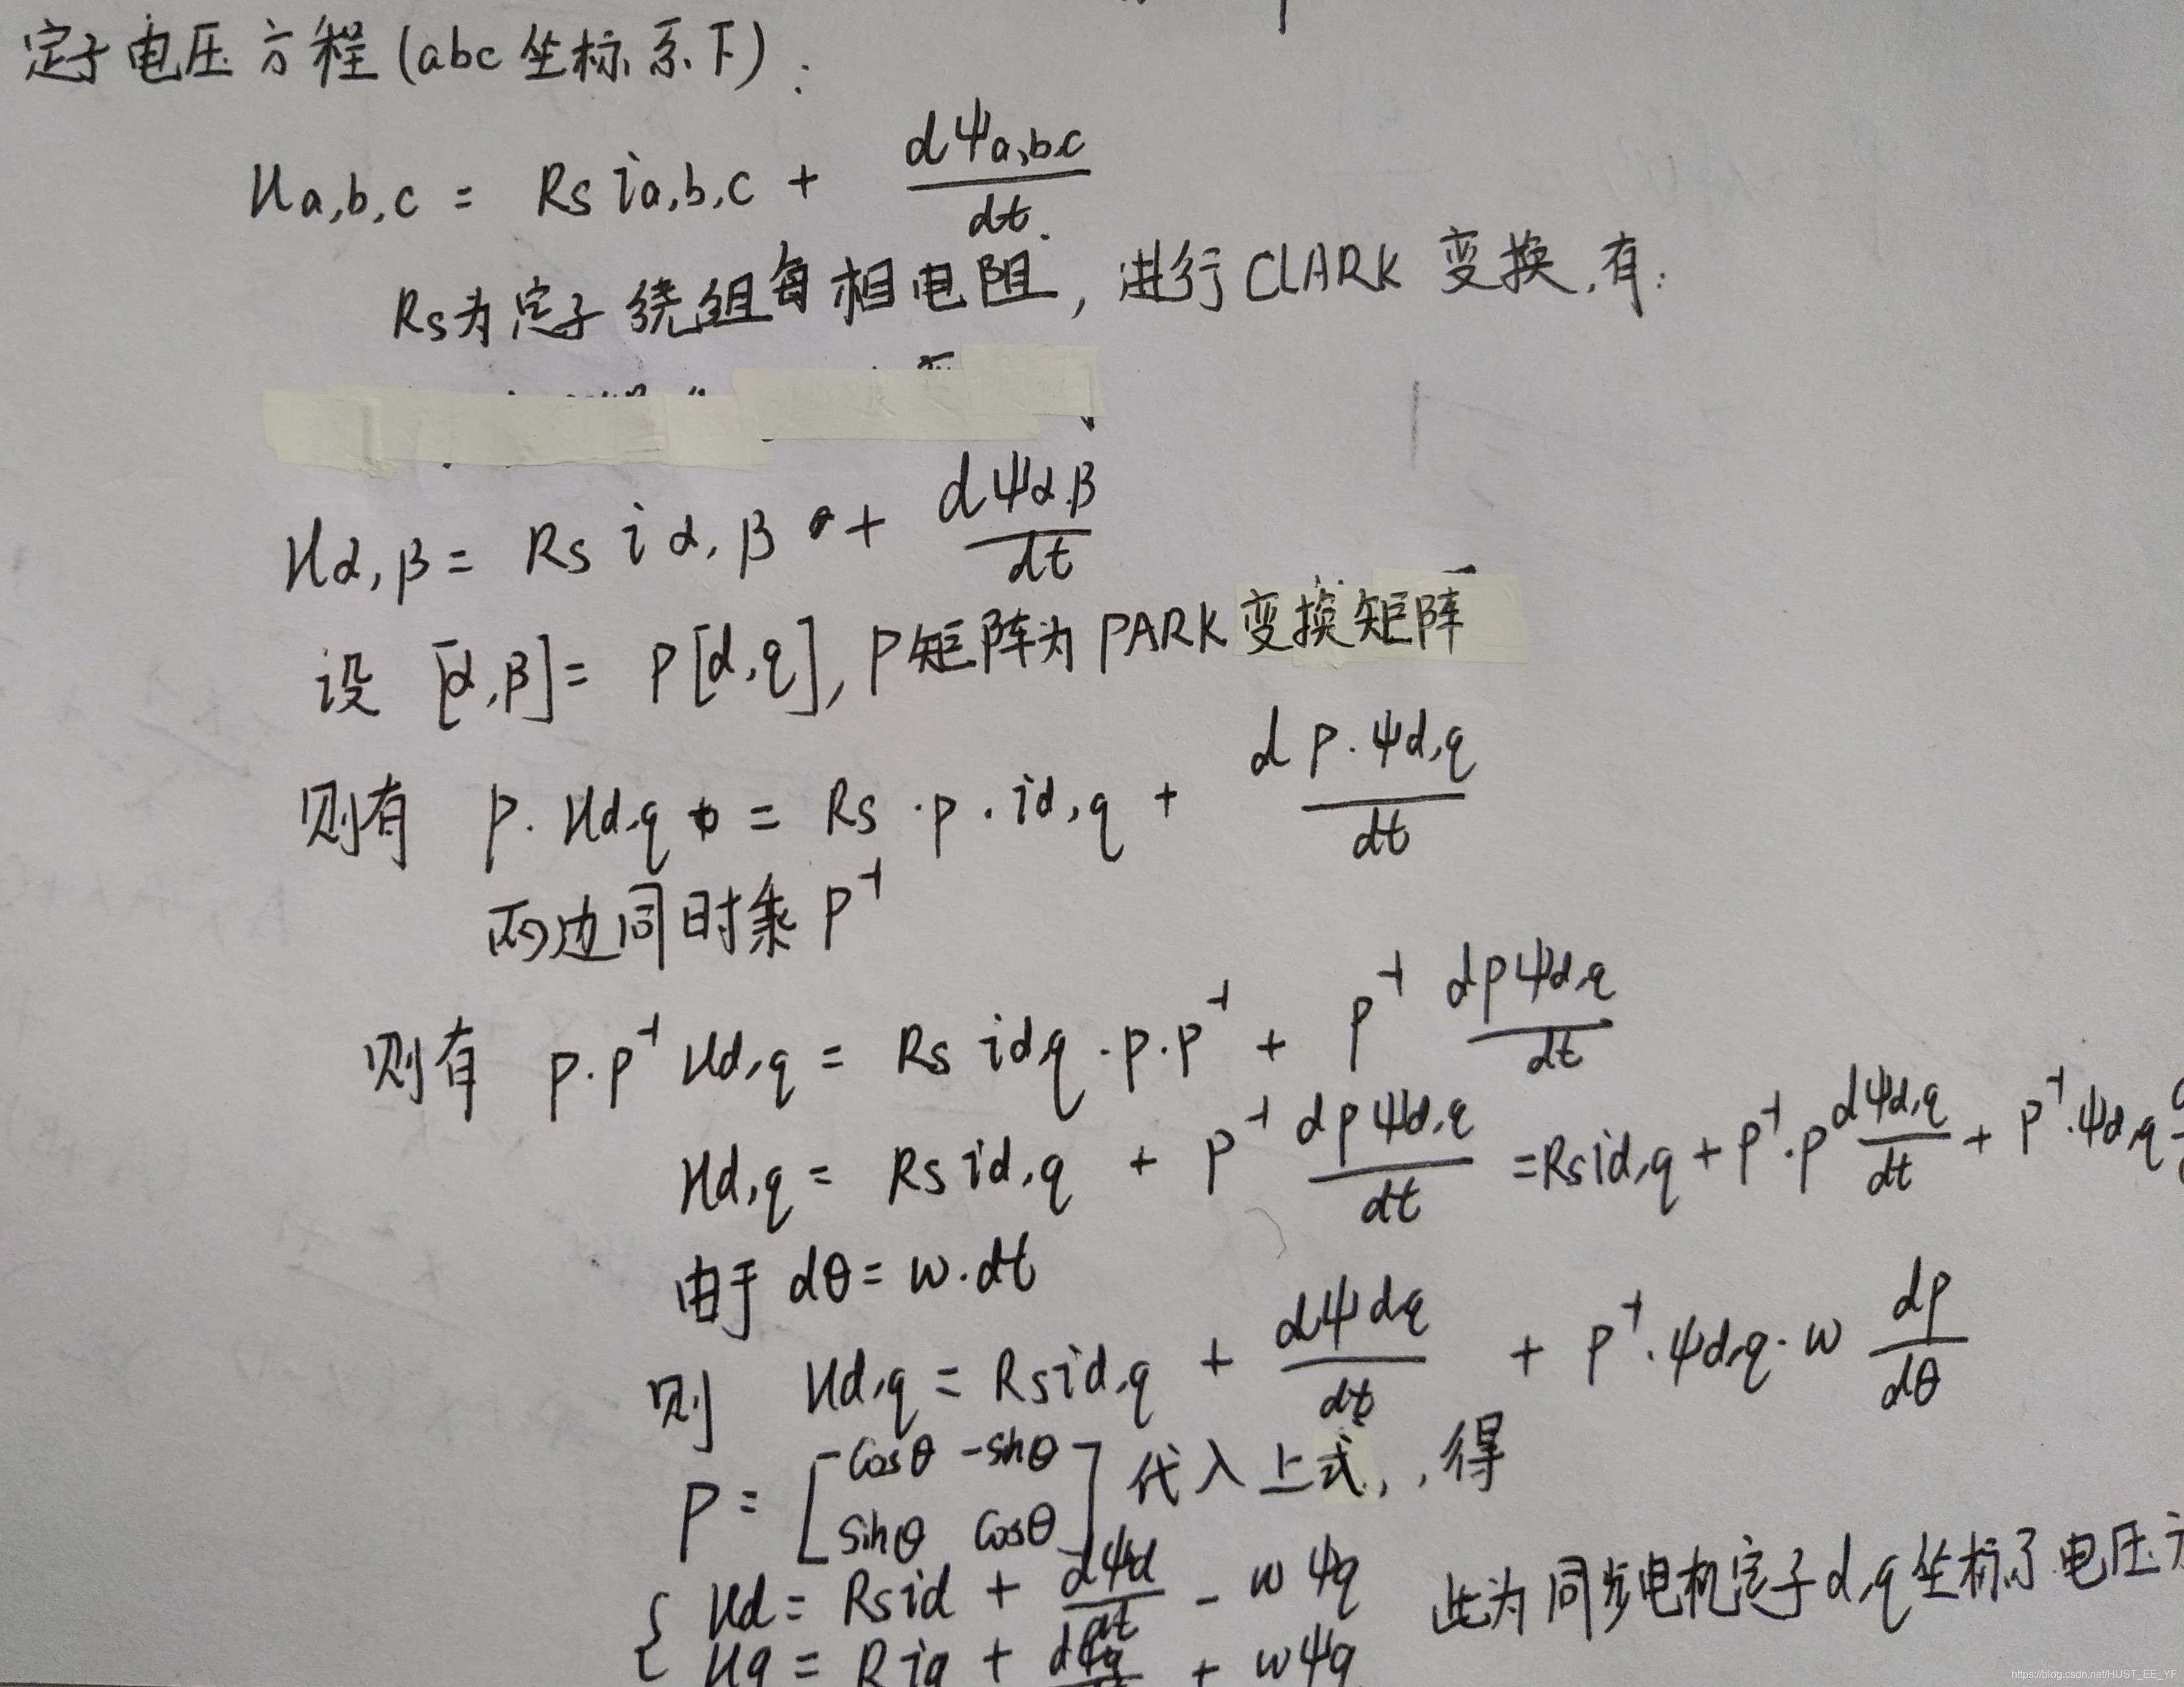 定子电压方程(abc坐标系下):
Ua,b,c = Rs ia,b,c + dΨa,b,c/dt
Rs为定子绕组每相电阻, 进行CLARK变换,有:
Uα,β = Rs iα,β + dΨα,β/dt
设 [α,β] = P[d,q], P矩阵为PARK变换矩阵
则有 P·Ud,q = Rs·P·id,q + dP·Ψd,q/dt
两边同时乘P⁻¹
则有 P·P⁻¹ Ud,q = Rs id,q·P·P⁻¹ + P⁻¹ dPΨd,q/dt
Ud,q = Rs id,q + P⁻¹ dPΨd,q/dt = Rs id,q + P⁻¹·P dΨd,q/dt + P⁻¹·Ψd,q
由于 dθ = w·dt
则 Ud,q = Rs id,q + dΨdq/dt + P⁻¹·Ψd,q·w dP/dθ
P = [cosθ -sinθ
sinθ cosθ] 代入上式,,得
{ Ud = Rs id + dΨd/dt - wΨq 此为同步电机定子d,q坐标了电压
Uq = R iq + dΨq + wΨq
https://blog.csdn.net/HUST_EE_YF